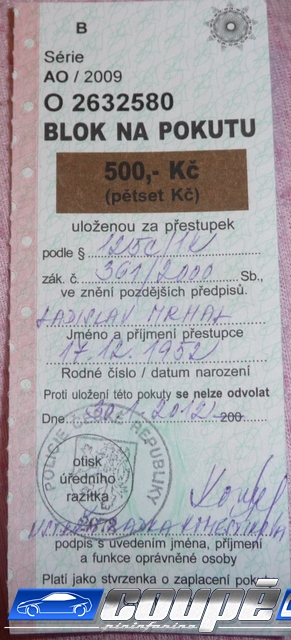 B
Série
AO / 2009
O 2632580
BLOK NA POKUTU
500,- Kč
(pětset Kč)
uloženou za přestupek
podle § 125c/1k
zák. č. 361/2000 Sb.,
ve znění pozdějších předpisů.
LADISLAV MRHAL
Jméno a příjmení přestupce
17.12.1952
Rodné číslo / datum narození
Proti uložení této pokuty se nelze odvolat
Dne 30.1.2012 200
POLICIE ČESKÉ REPUBLIKY
otisk
úředního
razítka
podpis s uvedením jména, příjmení
a funkce oprávněné osoby
Platí jako stvrzenka o zaplacení pokuty
coupé
pininfarina